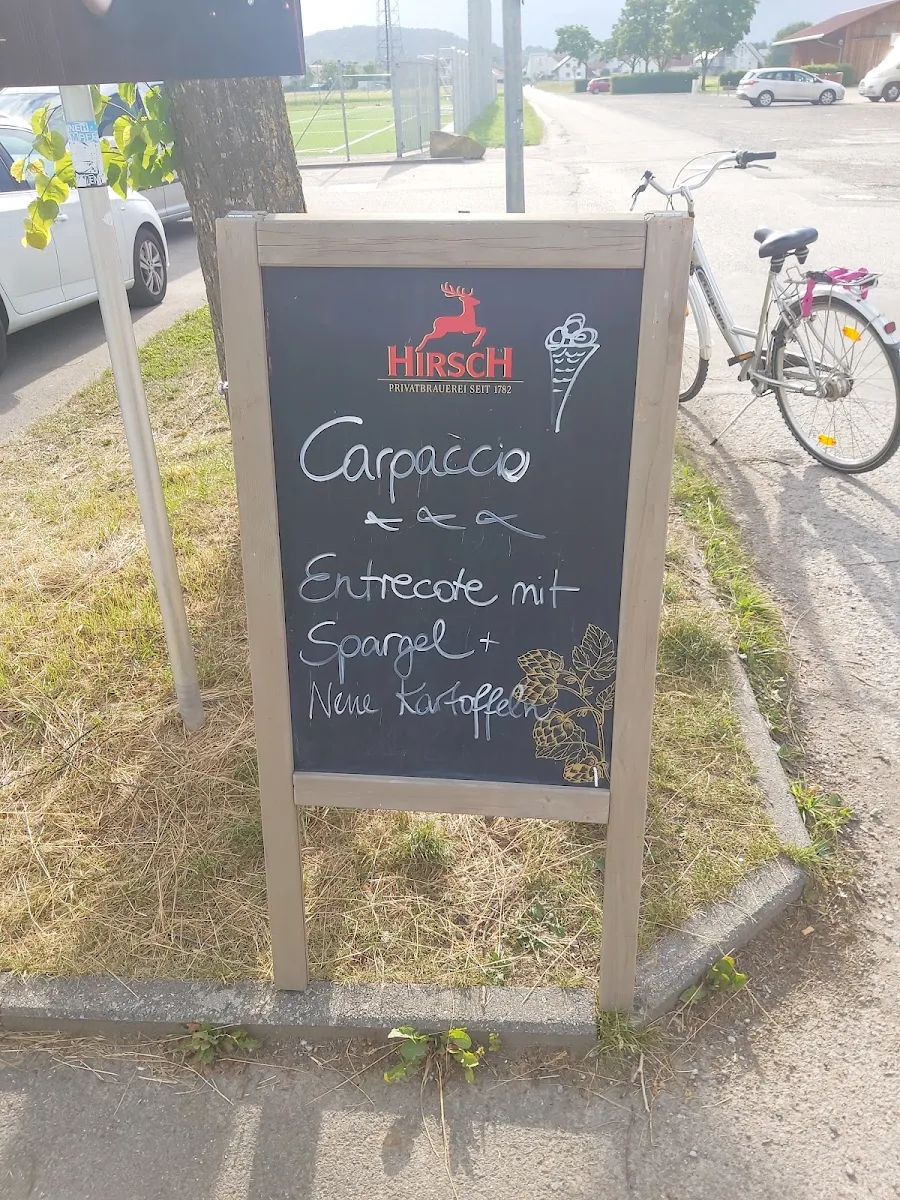 HIRSCH
PRIVATBRAUEREI SEIT 1782
Carpaccio
Entrecote mit
Spargel +
Neue Kartoffeln